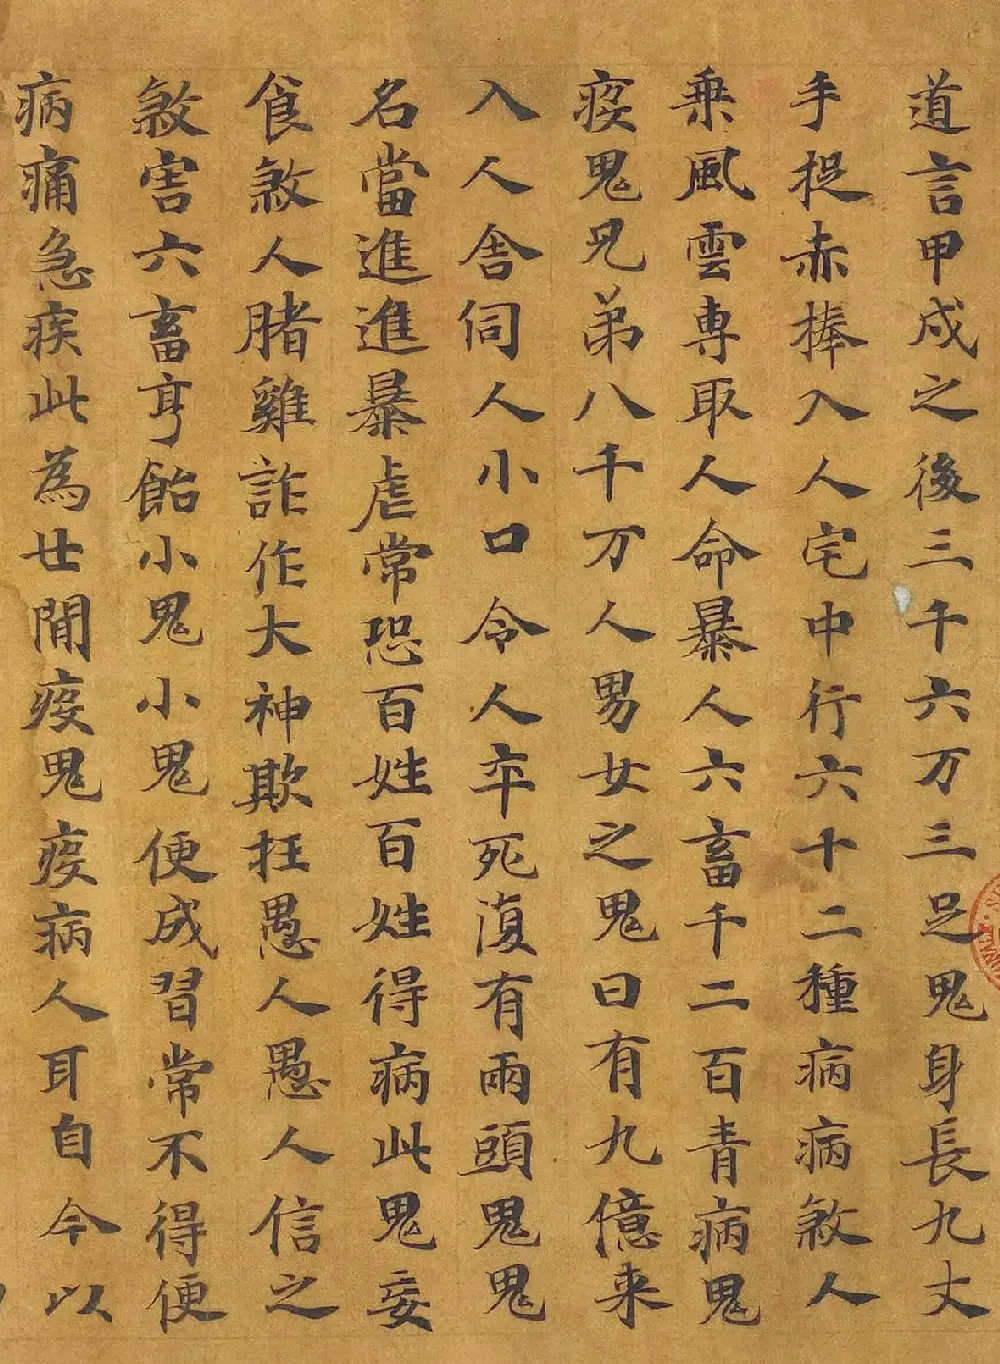 道言甲戌之後三千六万三足鬼身長九丈
手捉赤棒入人宅中行六十二種病病煞人
乗風雲専取人命暴人六畜千二百青病鬼
疫鬼兄弟八千万人男女之鬼日有九億来
入人舎伺人小口令人卒死復有兩頭鬼鬼
名當進進暴虐常恐百姓百姓得病此鬼妄
食煞人腤雞詐作大神欺抂愚人愚人信之
煞害六畜亨飴小鬼小鬼便成習常不得便
病痛急疾此為廿閒疫鬼疫病人耳自今以